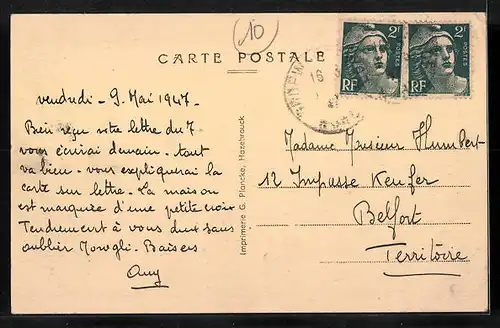 10
CARTE POSTALE
2F
POSTES
RF
2F
POSTES
RF
16
vendredi - 9. Mai 1947.
Bien reçu votre lettre du 7
vous écrirai demain. tout
va bien. vous expliquerai la
carte sur lettre. La maison
est marquée d'une petite croix
Tendrement à vous deux sans
oublier Mowgli. Baisers
Imprimerie G. Plancke, Hazebrouck
Madame Monsieur Humbert-
12 Impasse Keufer
Belfort
Territoire